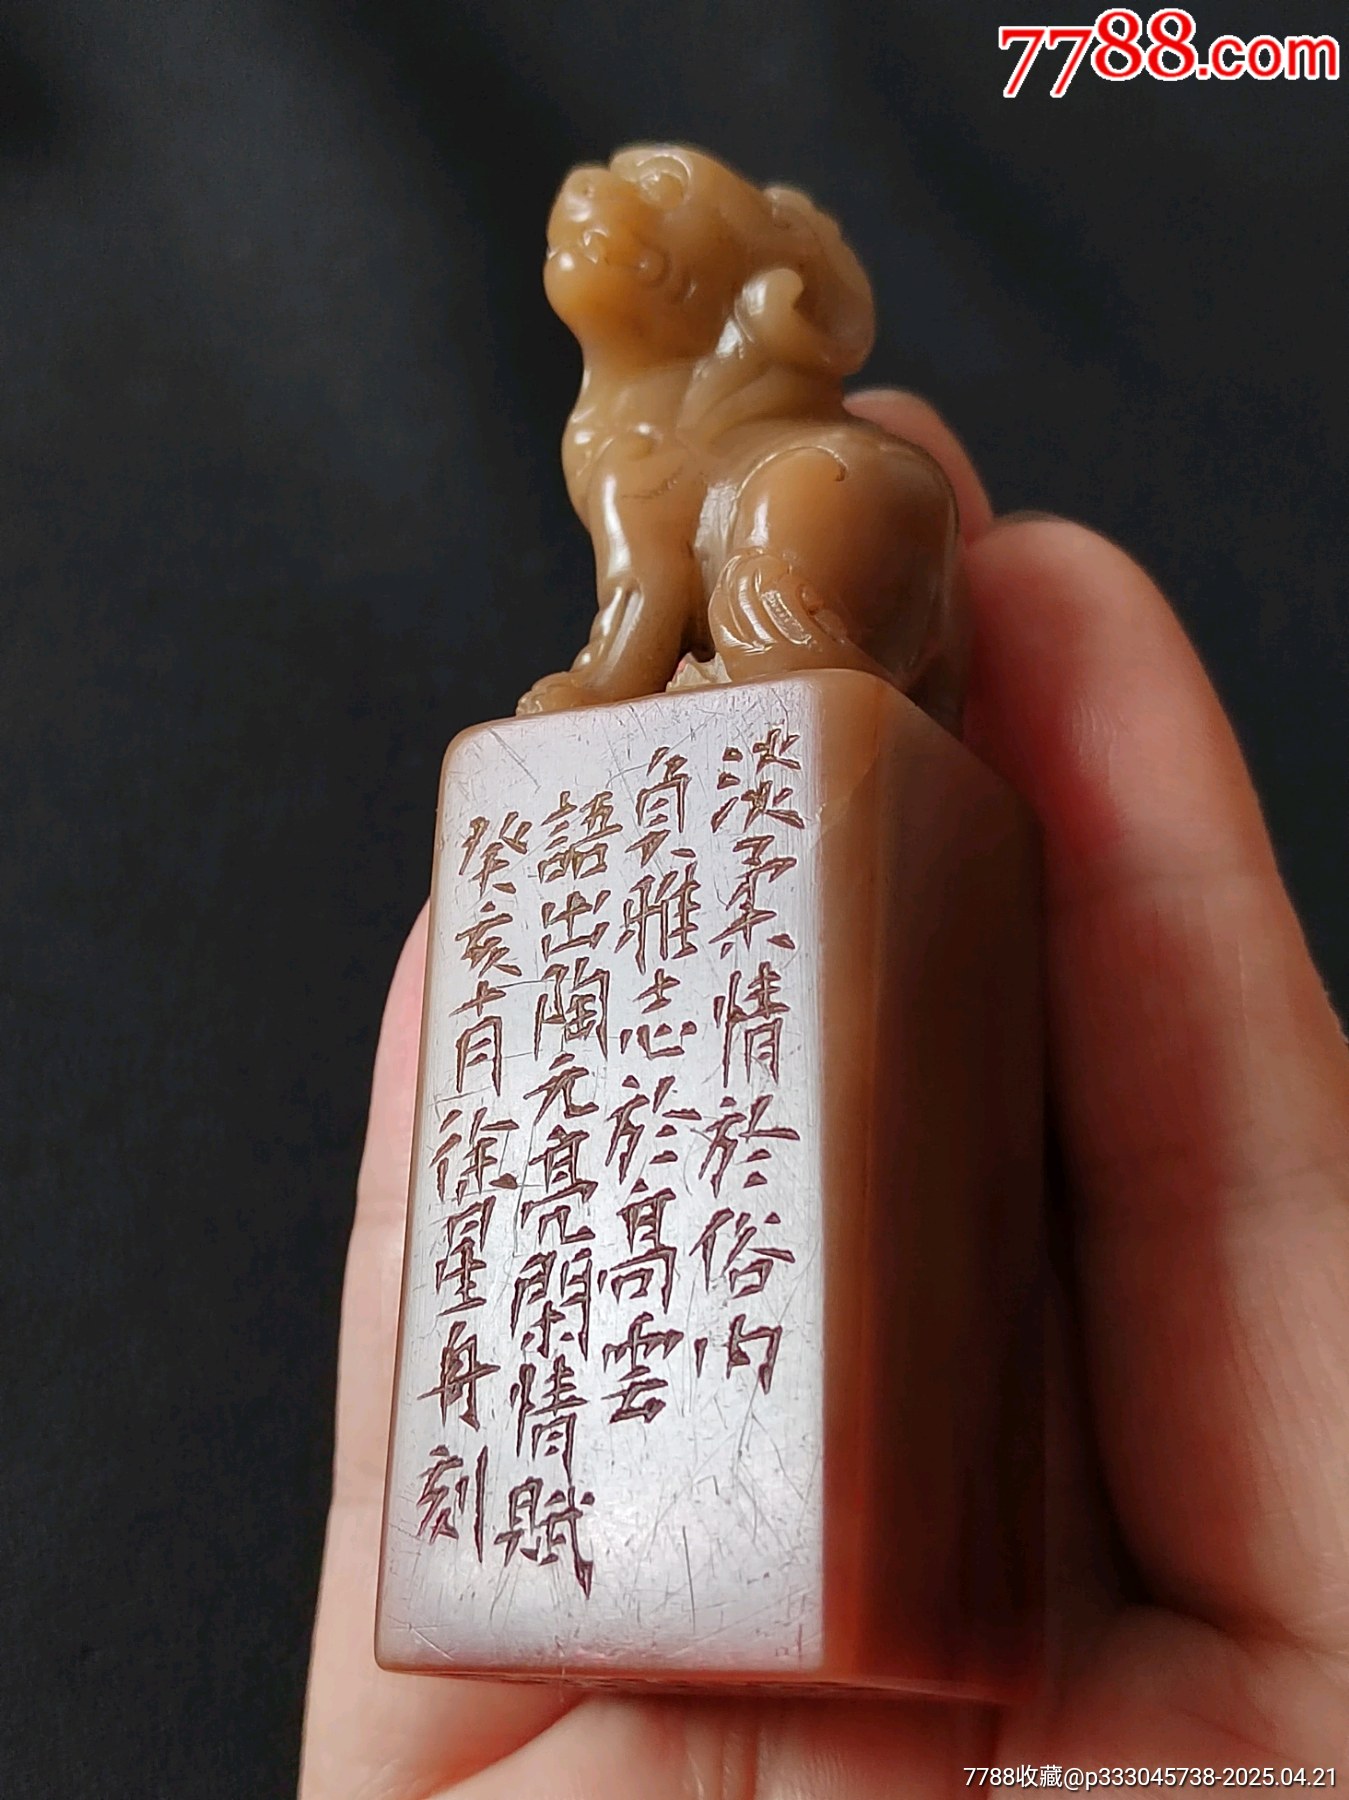 7788.com
淡柔情於俗内
負雅志於高雲
語出陶元亮閑情賦
癸亥十月徐星舟刻
7788收藏@p333045738-2025.04.21